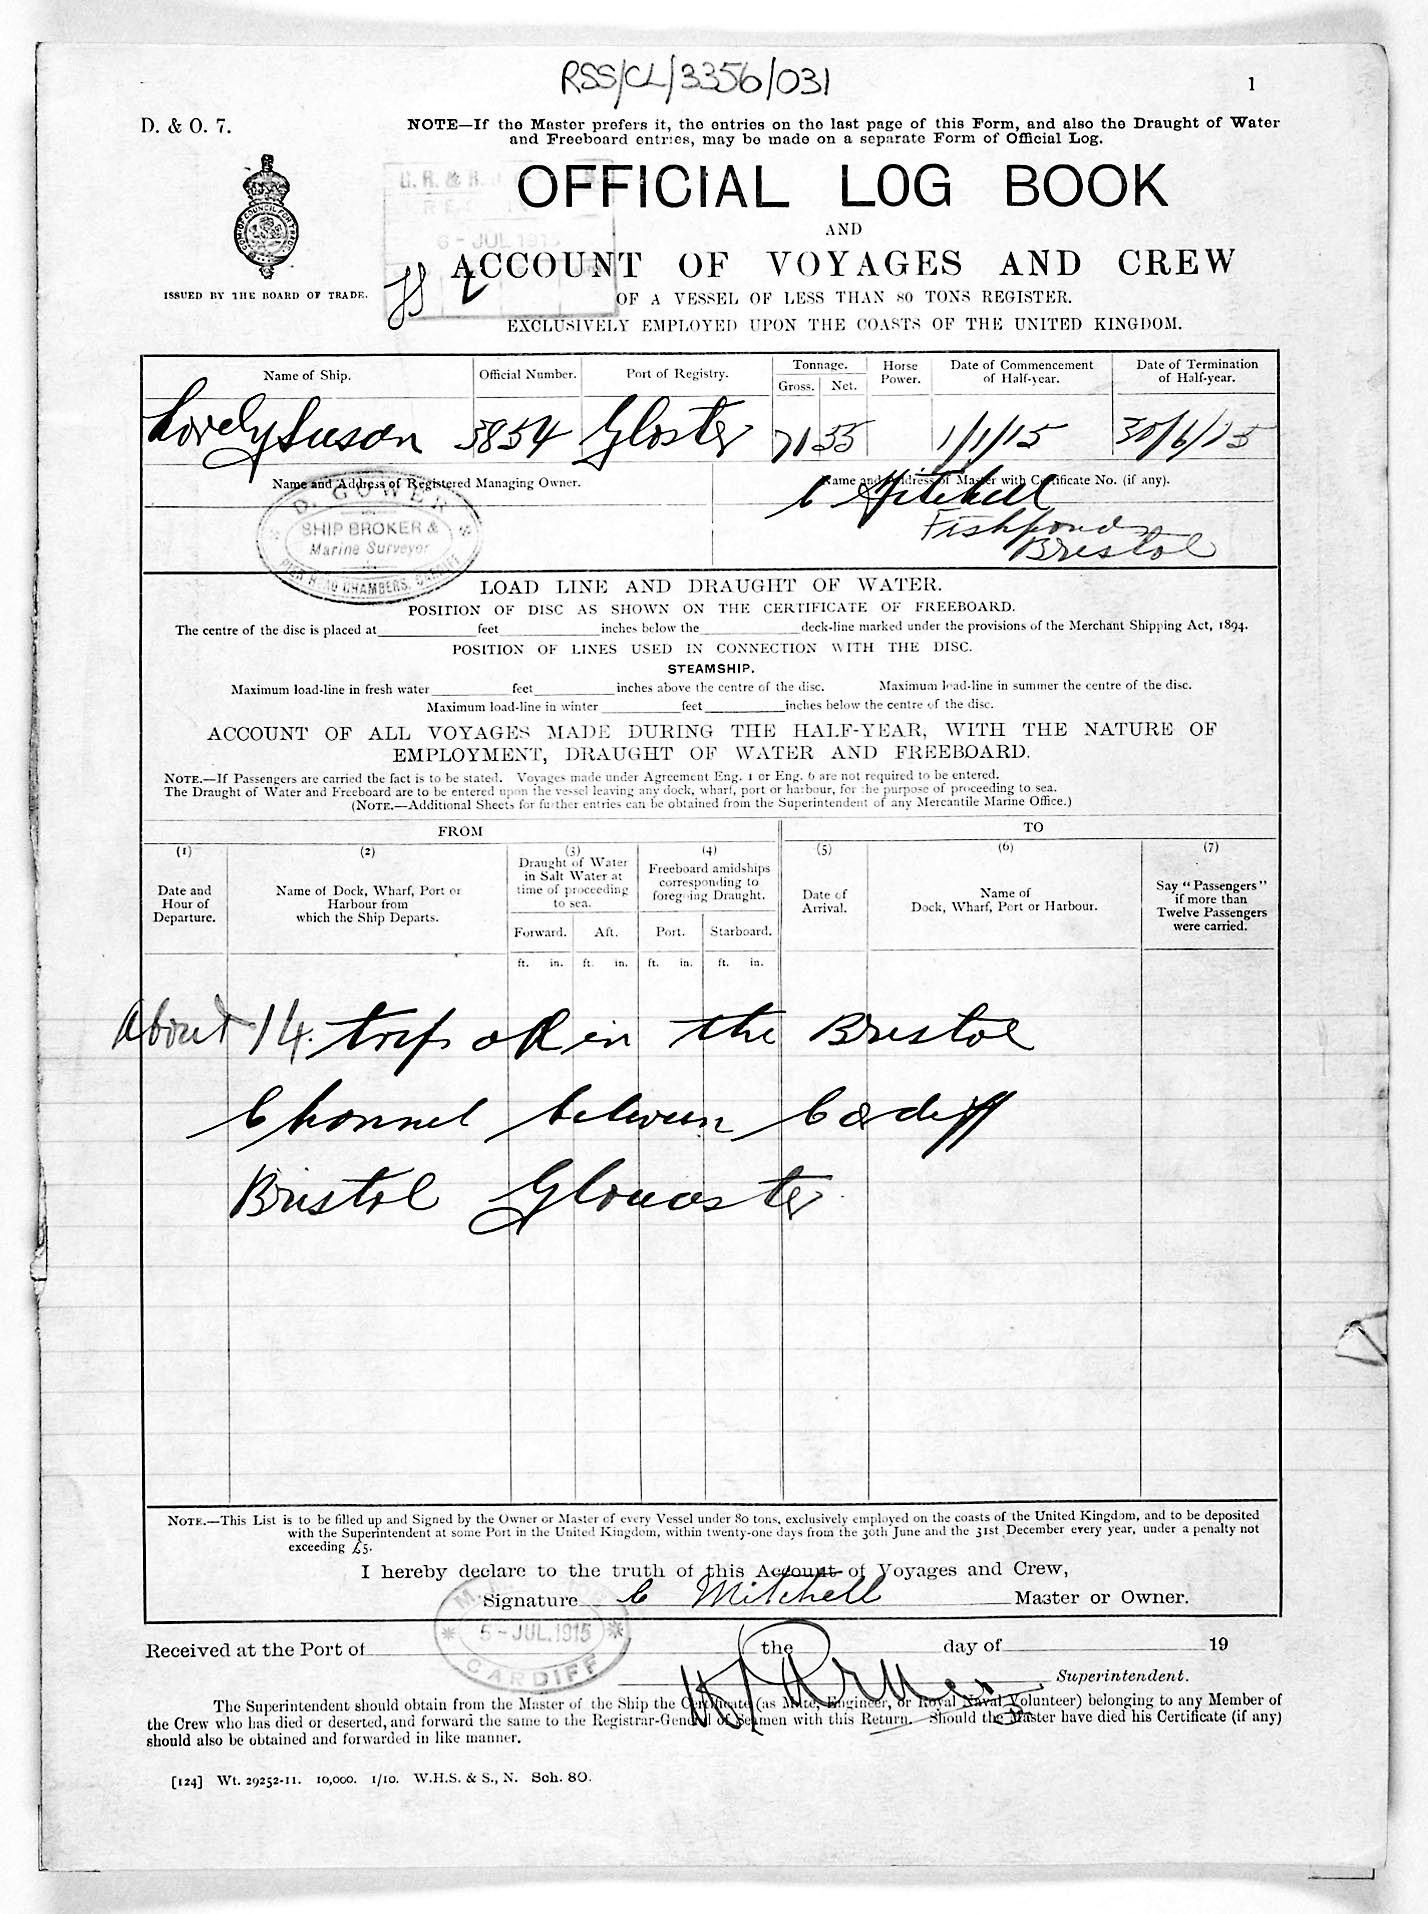 RSS/CL/3356/031
1
D. & O. 7.
NOTE—If the Master prefers it, the entries on the last page of this Form, and also the Draught of Water
and Freeboard entries, may be made on a separate Form of Official Log.
OFFICIAL LOG BOOK
AND
6 - JUL 1915
ACCOUNT OF VOYAGES AND CREW
ISSUED BY THE BOARD OF TRADE.
OF A VESSEL OF LESS THAN 80 TONS REGISTER.
EXCLUSIVELY EMPLOYED UPON THE COASTS OF THE UNITED KINGDOM.
Name of Ship. Official Number. Port of Registry. Tonnage. Gross. Net. Horse Power. Date of Commencement of Half-year. Date of Termination of Half-year.
Lovely Susan 5854 Gloster 71 55 1/1/15 30/6/15
Name and Address of Registered Managing Owner. Name and Address of Master with Certificate No. (if any).
C Mitchell
Fishponds
Bristol
D. GOWER
SHIP BROKER &
Marine Surveyor
PIER HEAD CHAMBERS, CARDIFF
LOAD LINE AND DRAUGHT OF WATER.
POSITION OF DISC AS SHOWN ON THE CERTIFICATE OF FREEBOARD.
The centre of the disc is placed at feet inches below the deck-line marked under the provisions of the Merchant Shipping Act, 1894.
POSITION OF LINES USED IN CONNECTION WITH THE DISC.
STEAMSHIP.
Maximum load-line in fresh water feet inches above the centre of the disc. Maximum load-line in summer the centre of the disc.
Maximum load-line in winter feet inches below the centre of the disc.
ACCOUNT OF ALL VOYAGES MADE DURING THE HALF-YEAR, WITH THE NATURE OF
EMPLOYMENT, DRAUGHT OF WATER AND FREEBOARD.
NOTE.—If Passengers are carried the fact is to be stated. Voyages made under Agreement Eng. 1 or Eng. 6 are not required to be entered.
The Draught of Water and Freeboard are to be entered upon the vessel leaving any dock, wharf, port or harbour, for the purpose of proceeding to sea.
(NOTE.—Additional Sheets for further entries can be obtained from the Superintendent of any Mercantile Marine Office.)
FROM TO
(1) (2) (3) (4) (5) (6) (7)
Date and Hour of Departure.
Name of Dock, Wharf, Port or Harbour from which the Ship Departs.
Draught of Water in Salt Water at time of proceeding to sea.
Freeboard amidships corresponding to foregoing Draught.
Date of Arrival.
Name of Dock, Wharf, Port or Harbour.
Say "Passengers" if more than Twelve Passengers were carried.
Forward. Aft. Port. Starboard.
ft. in. ft. in. ft. in. ft. in.
About 14 trips all in the Bristol
Channel between Cardiff
Bristol Gloucester
NOTE.—This List is to be filled up and Signed by the Owner or Master of every Vessel under 80 tons, exclusively employed on the coasts of the United Kingdom, and to be deposited
with the Superintendent at some Port in the United Kingdom, within twenty-one days from the 30th June and the 31st December every year, under a penalty not
exceeding £5.
I hereby declare to the truth of this Account of Voyages and Crew,
Signature C Mitchell Master or Owner.
5 - JUL. 1915
CARDIFF
Received at the Port of the day of 19
Superintendent.
The Superintendent should obtain from the Master of the Ship the Certificate (as Mate, Engineer, or Royal Naval Volunteer) belonging to any Member of
the Crew who has died or deserted, and forward the same to the Registrar-General of Seamen with this Return. Should the Master have died his Certificate (if any)
should also be obtained and forwarded in like manner.
[124] Wt. 29252-11. 10,000. 1/10. W.H.S. & S., N. Sch. 80.